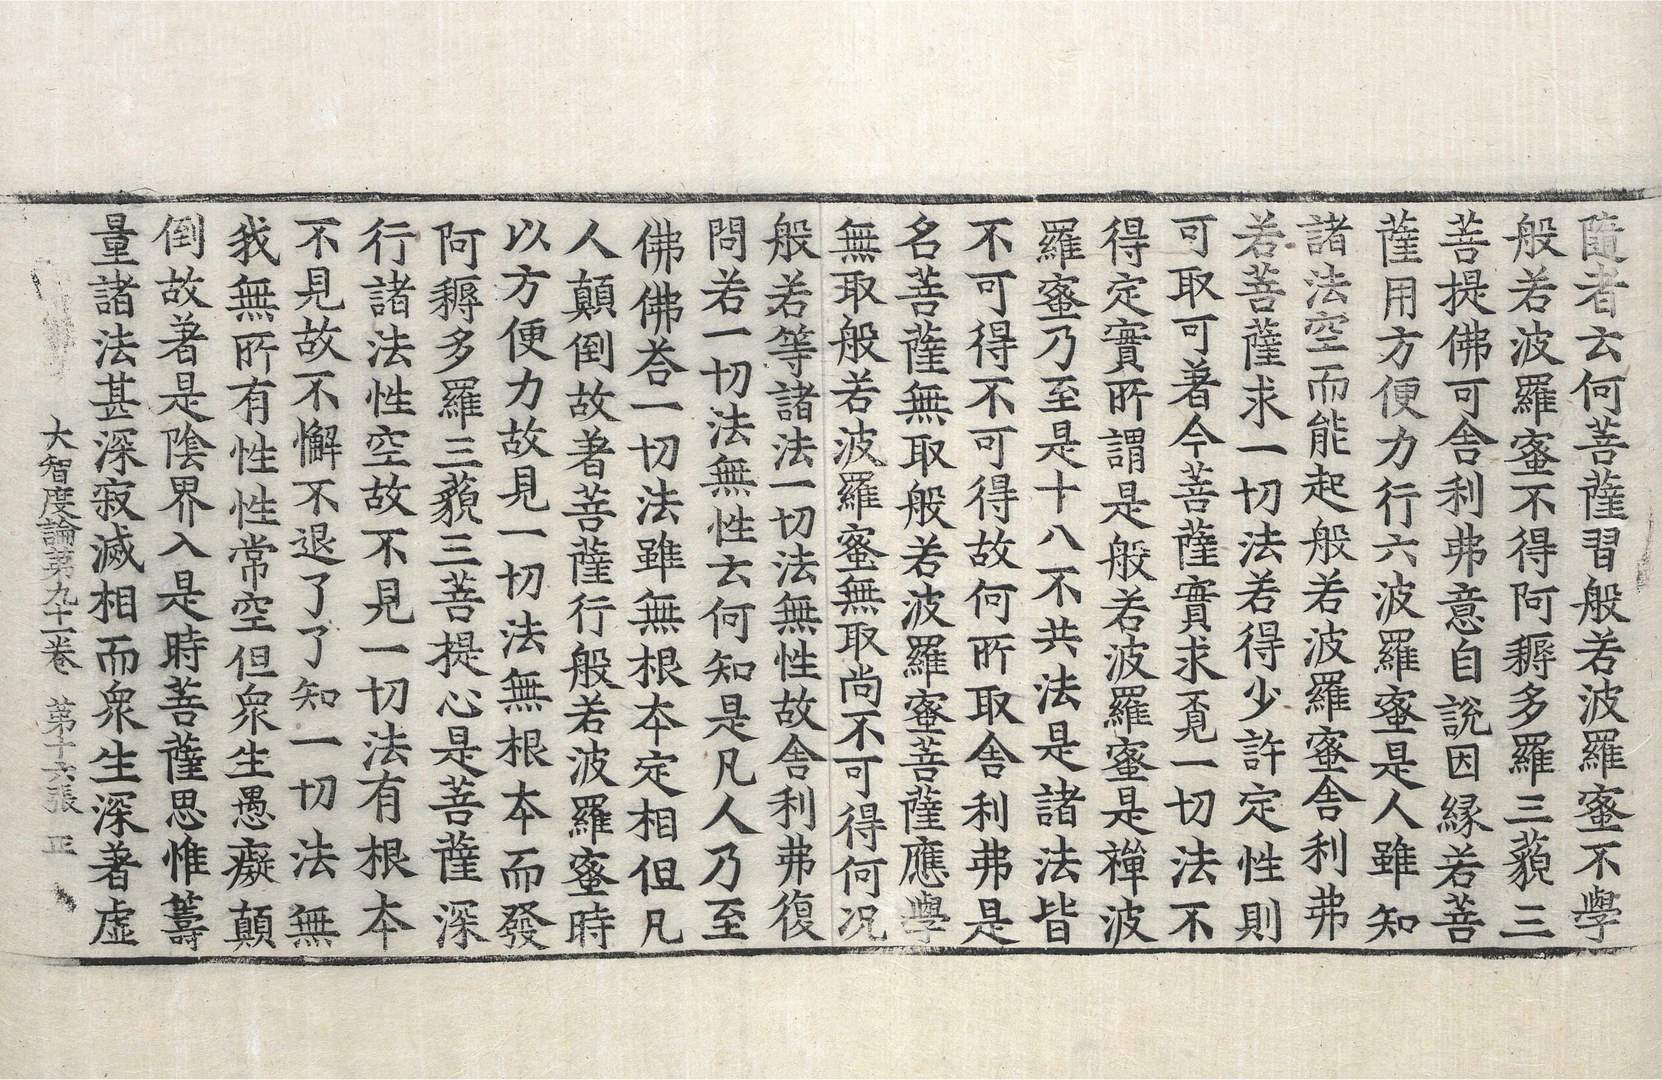 隨者云何菩薩習般若波羅蜜不學
般若波羅蜜不得阿耨多羅三藐三
菩提佛可舍利弗意自說因緣若菩
薩用方便力行六波羅蜜是人雖知
諸法空而能起般若波羅蜜舍利弗
若菩薩求一切法若得少許定性則
可取可著今菩薩實求覔一切法不
得定實所謂是般若波羅蜜是禪波
羅蜜乃至是十八不共法是諸法皆
不可得不可得故何所取舍利弗是
名菩薩無取般若波羅蜜菩薩應學
無取般若波羅蜜無取尚不可得何況
般若等諸法一切法無性故舍利弗復
問若一切法無性云何知是凡人乃至
佛佛荅一切法雖無根本定相但凡
人顛倒故著菩薩行般若波羅蜜時
以方便力故見一切法無根本而發
阿耨多羅三藐三菩提心是菩薩深
行諸法性空故不見一切法有根本
不見故不懈不退了了知一切法無
我無所有性性常空但衆生愚癡顛
倒故著是陰界入是時菩薩思惟籌
量諸法甚深寂滅相而衆生深著虛
大智度論第九十一卷 第十六張 正